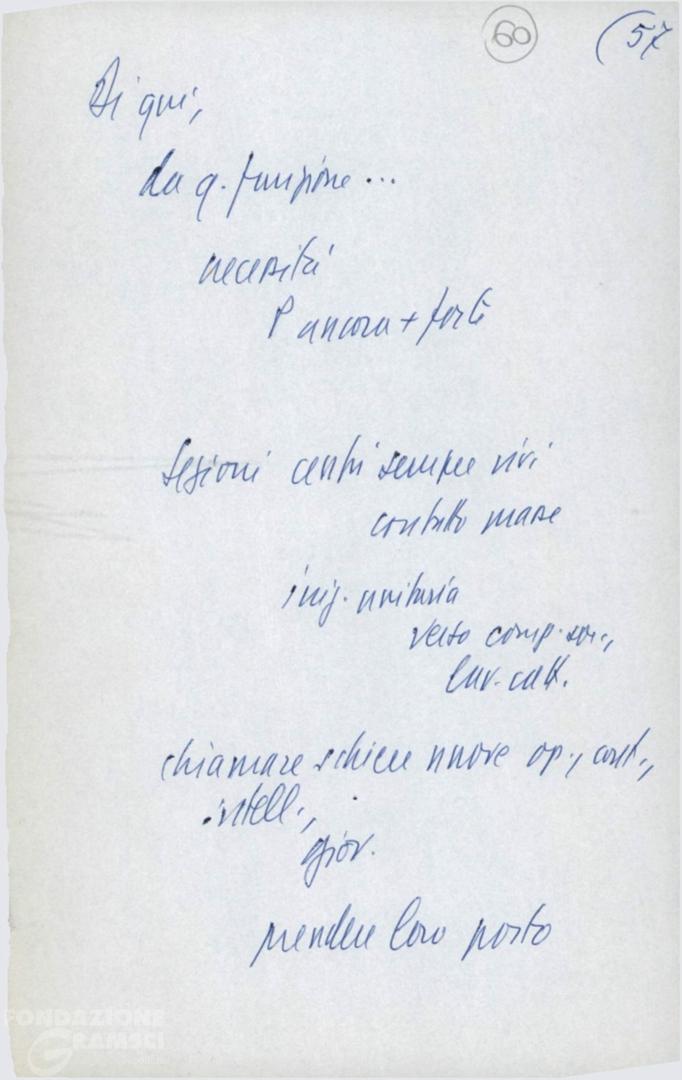 60
(57
Di qui,
da q. funzione...
necessità
P ancora + forte
Sezioni centri sempre vivi
contatto masse
iniz. unitaria
verso comp. soc.,
lav. catt.
chiamare schiere nuove op., cont.,
intell.,
giov.
prendere loro posto
FONDAZIONE
GRAMSCI